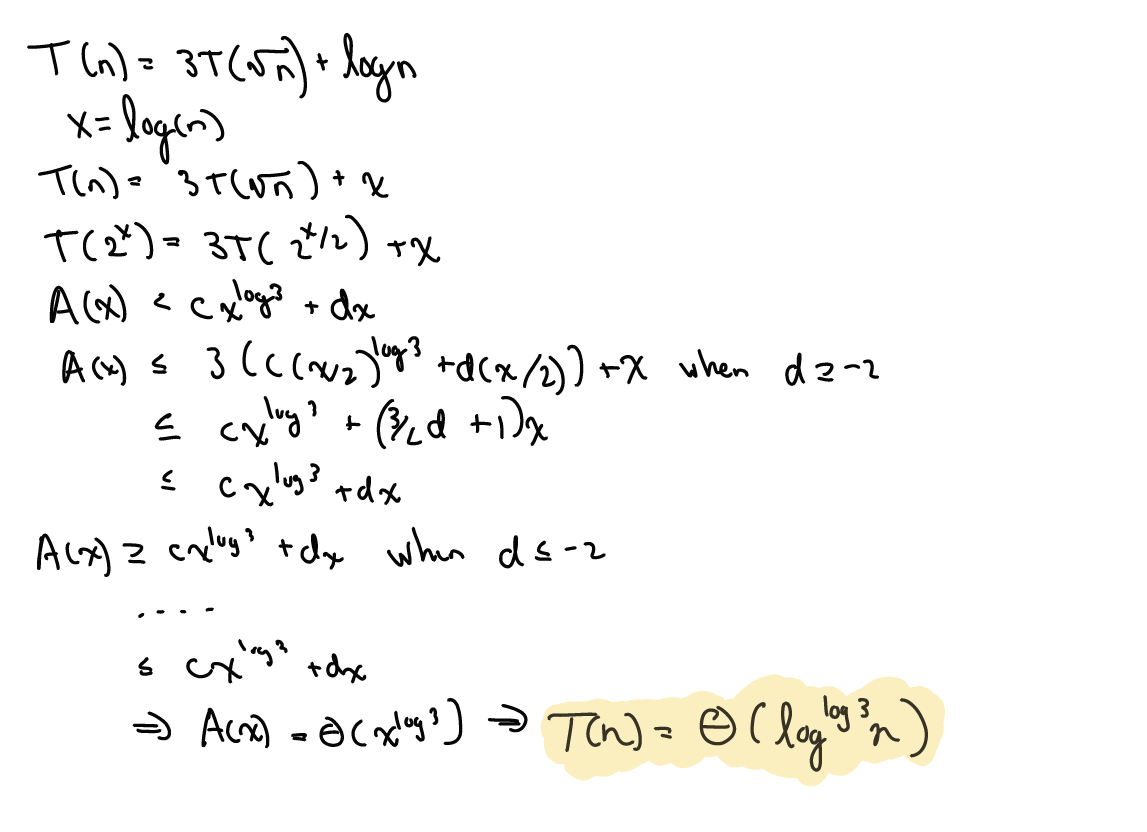 T(n) = 3T(√n) + logn
x = log(n)
T(n) = 3T(√n) + x
T(2^x) = 3T(2^{x/2}) + x
A(x) < cx^{log3} + dx
A(x) ≤ 3(c(x/2)^{log3} + d(x/2)) + x when d ≥ -2
≤ cx^{log3} + (3/2 d + 1)x
≤ cx^{log3} + dx
A(x) ≥ cx^{log3} + dx when d ≤ -2
....
≤ cx^{log3} + dx
⇒ A(x) = Θ(x^{log3}) ⇒ T(n) = Θ(log^{log3} n)